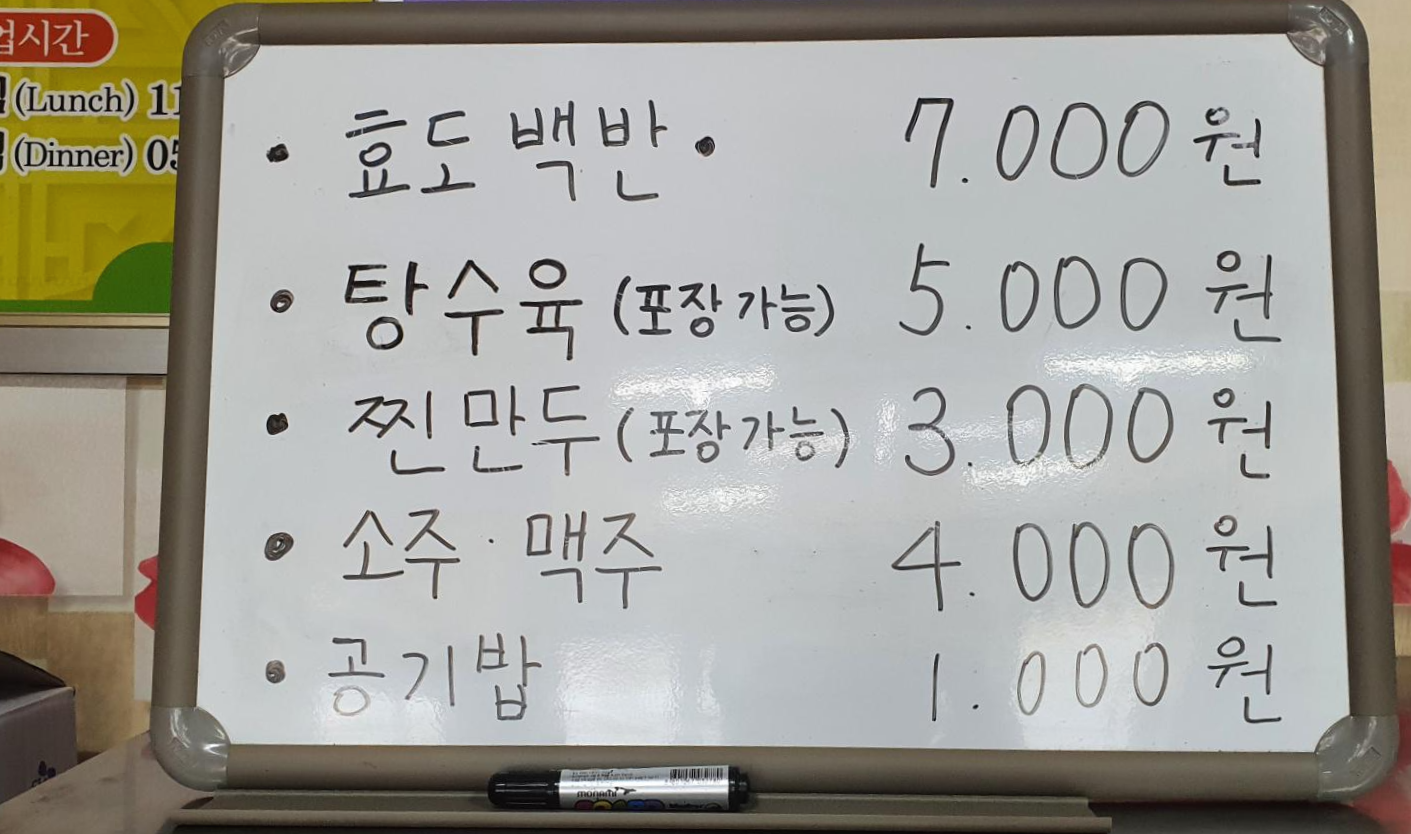 업시간
(Lunch) 11
(Dinner) 05
• 효도 백반 • 7.000 원
• 탕수육 (포장 가능) 5.000 원
• 찐만두 (포장 가능) 3.000 원
• 소주 · 맥주 4.000 원
• 공기밥 1.000 원
monami